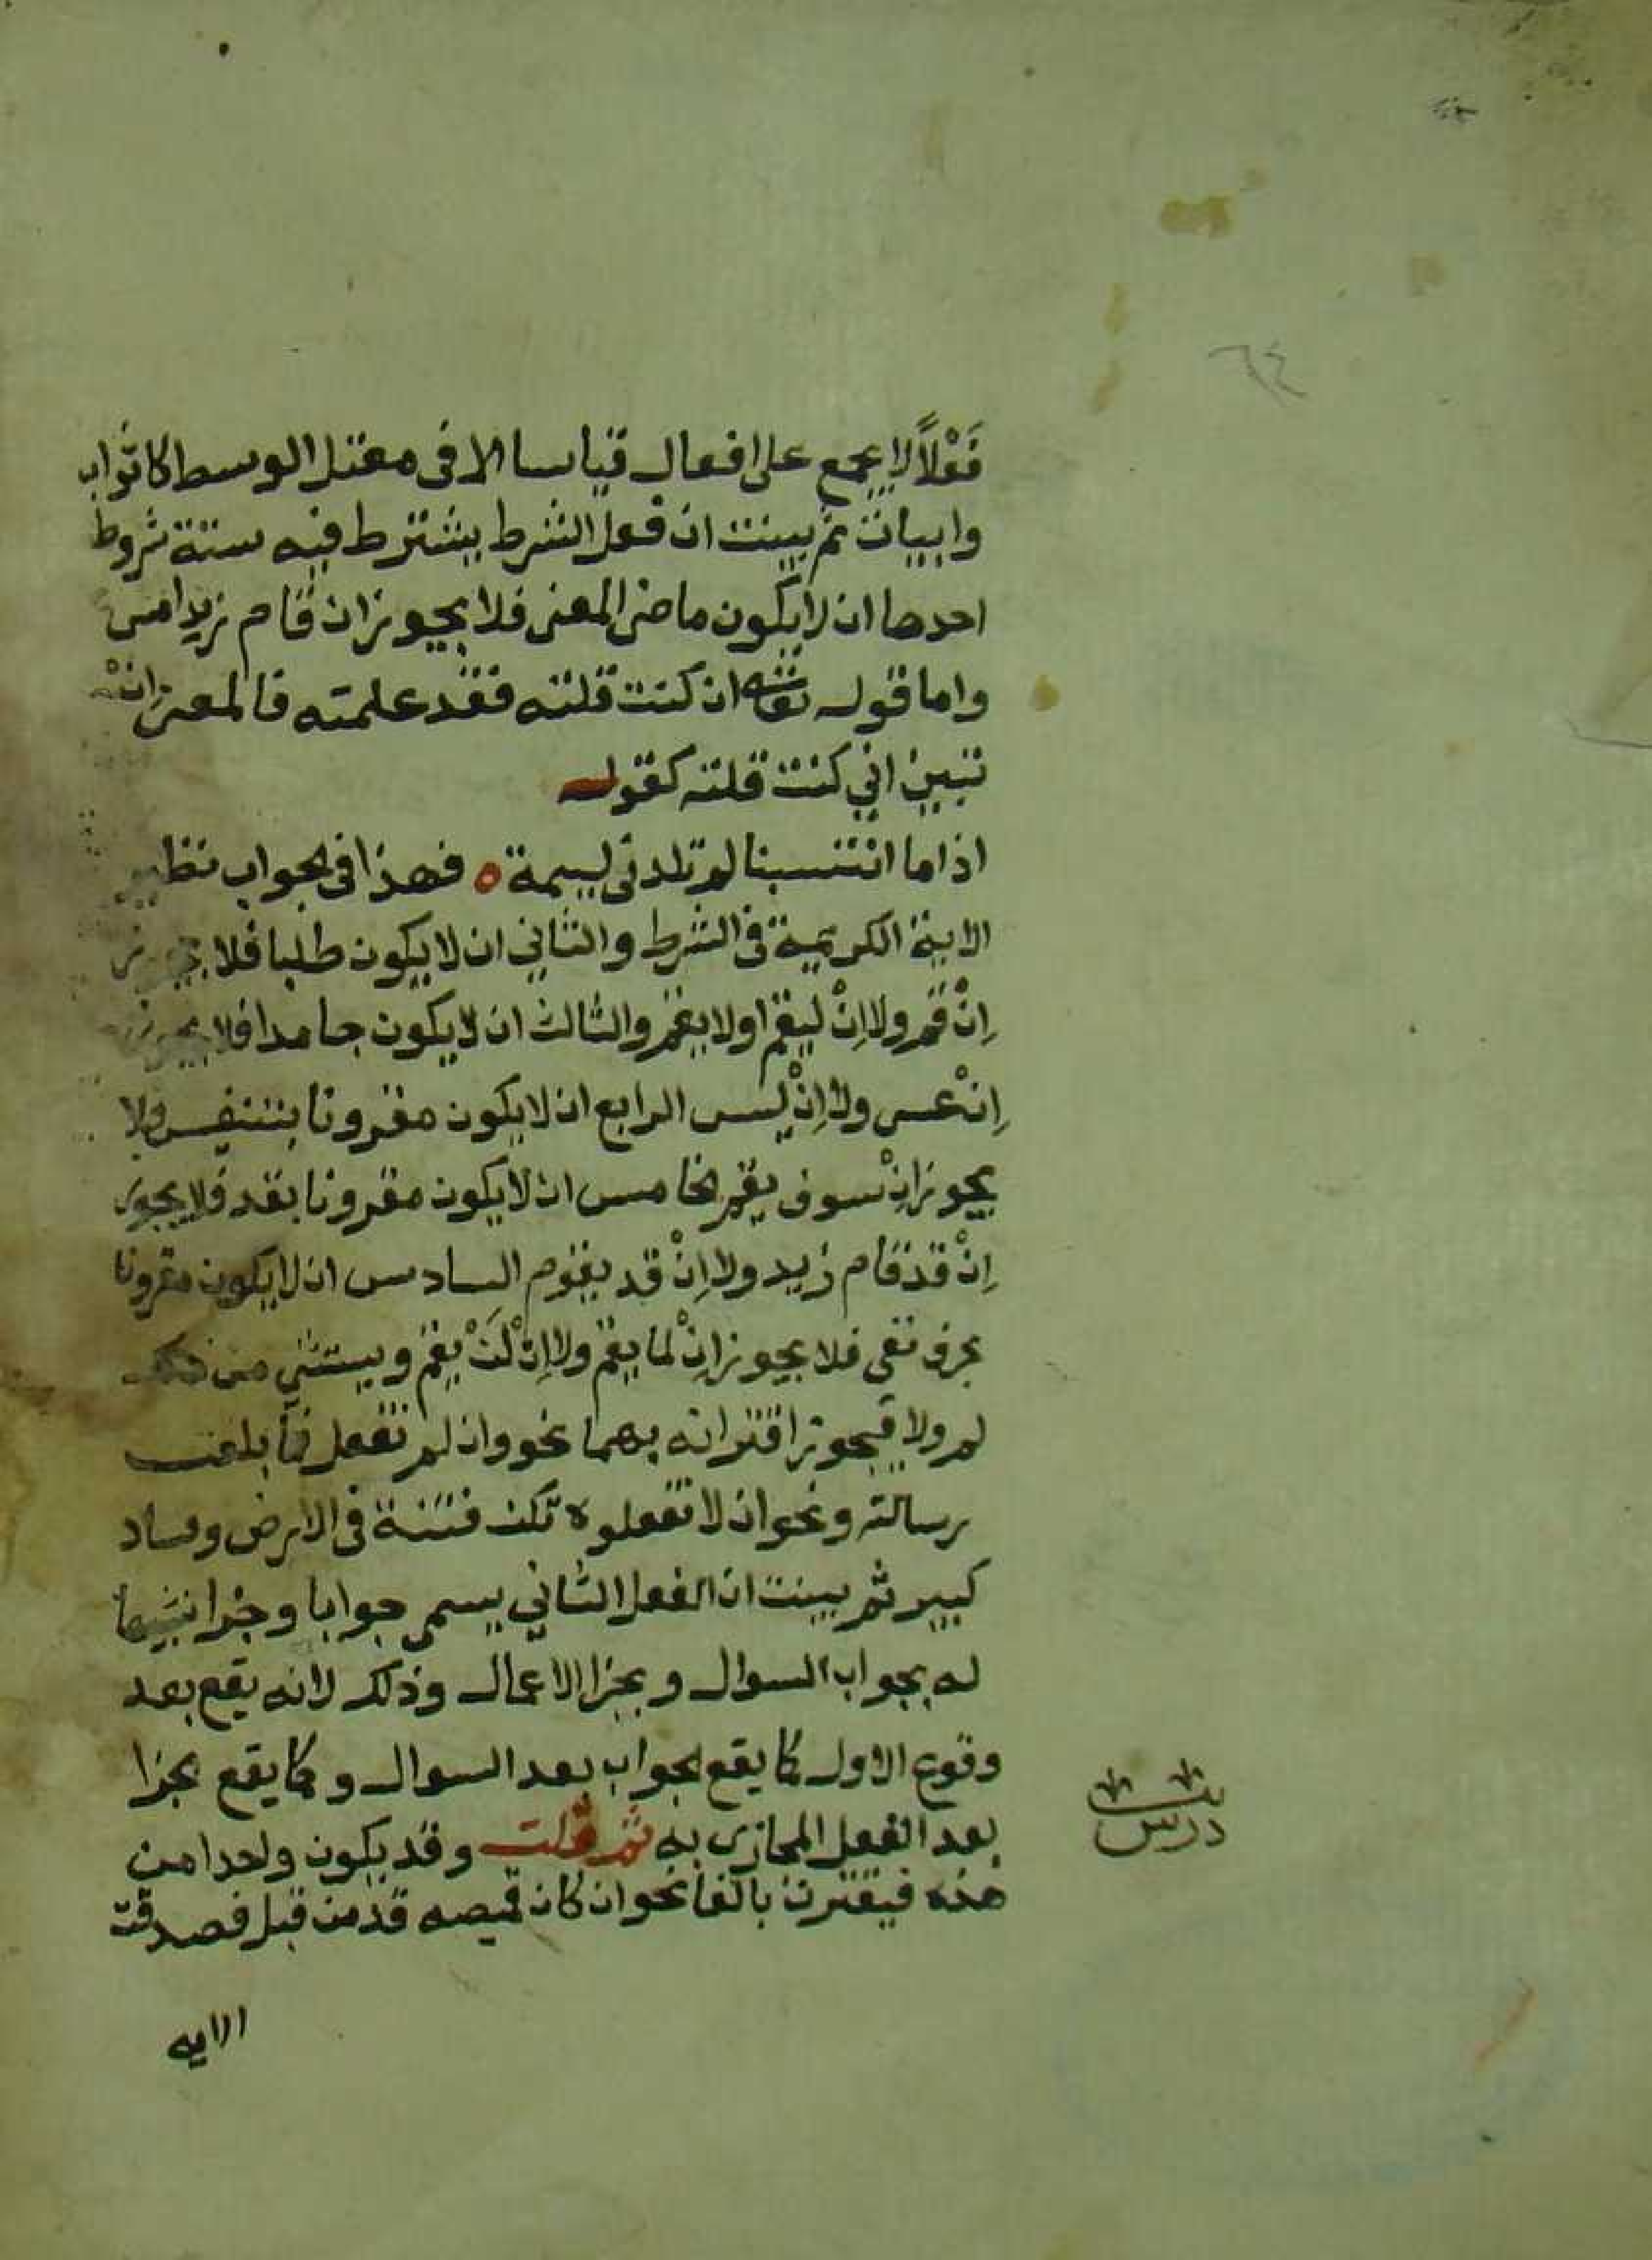 ٦٤
فَعْلاً لا يجمع على افعال قياسا الا في معتل الوسط كاثواب
وابيات ثم بينت ان فعل الشرط يشترط فيه ستة شروط
احدها ان لا يكون ماضي المعنى فلا يجوز ان قام زيد امس
واما قوله تعالى ان كنت قلته فقد علمته فالمعنى ان
تبين اني كنت قلته كقوله
اذا ما انتسبنا لم تلدني لييمة ٥ فهذا في الجواب نظير
الاية الكريمة في الشرط والثاني ان لا يكون طلبا فلا يجوز
اِنْ قم ولا اِنْ ليقم او لا يقم والثالث ان لا يكون جامدا فلا يجوز
اِنْ عسى ولا اِنْ ليس الرابع ان لا يكون مقرونا بتنفيس ولا
يجوز اِنْ سوف يقم الخامس ان لا يكون مقرونا بقد فلا يجوز
اِنْ قد قام زيد ولا اِنْ قد يقوم السادس ان لا يكون مقرونا
بحرف نفي فلا يجوز اِنْ لما يقم ولا اِنْ لَنْ يقم ويستثنى من ذلك
لم ولا فيجوز اقترانه بهما نحو وان لم تفعل فما بلغت
رسالته ونحو ان لا تفعلوه تكن فتنة في الارض وفساد
كبير ثم بينت ان الفعل الثاني يسمى جوابا وجزا تشبيها
له بجواب السوال وبجزا الاعمال وذلك لانه يقع بعد
وقوع الاول كما يقع الجواب بعد السوال وكما يقع الجزا
بعد الفعل المجازى به ثم قلت وقد يكون واحدا من
هذه فيقترن بالفا نحو ان كان قميصه قد من قبل فصدقت
الايه
درس